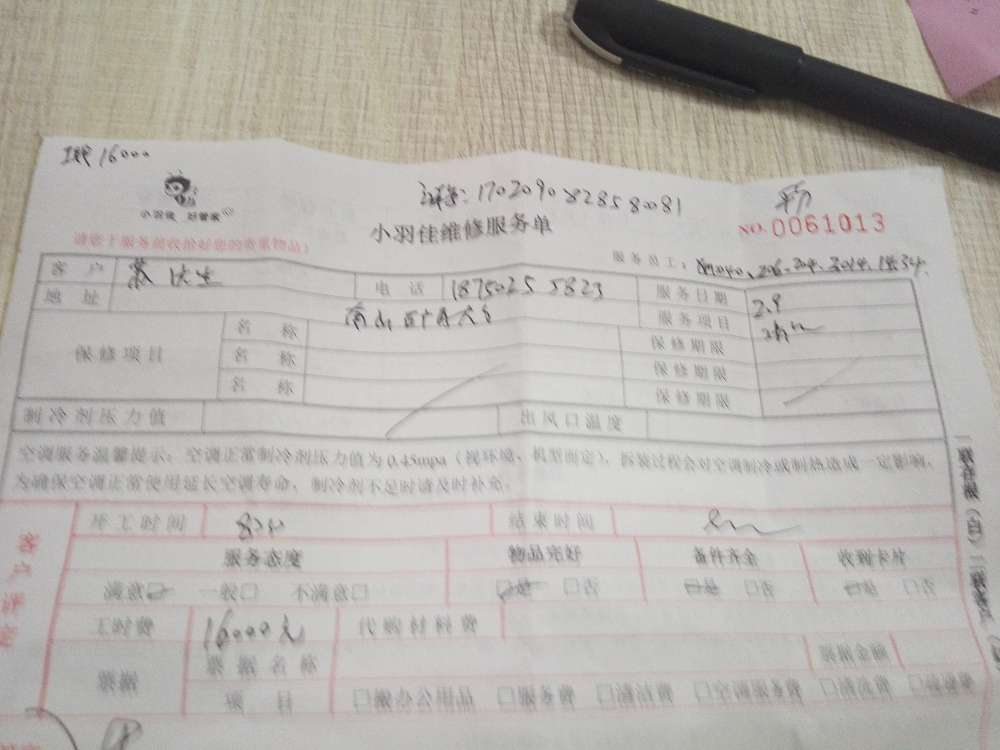 16000
1702090828580081
小羽佳 好管家
小羽佳维修服务单
NO.0061013
请您于服务前收拾好您的贵重物品!
服务员工:
客户 苏先生 电话 18750255823 服务日期 2.9
地址 南山 服务项目
保修项目 名称 保修期限
名称 保修期限
名称 保修期限
制冷剂压力值 出风口温度
空调服务温馨提示:空调正常制冷剂压力值为0.45mpa(视环境、机型而定),拆装过程会对空调制冷或制热造成一定影响,
为确保空调正常使用延长空调寿命,制冷剂不足时请及时补充。
开工时间 结束时间
客户评定
服务态度 物品完好 备件齐全 收到卡片
满意□ 一般□ 不满意□ □是 □否 □是 □否 □是 □否
工时费 16000元 代购材料费
票据 票据名称 票据金额
项目 □搬办公用品 □服务费 □清洁费 □空调服务费 □清洗费